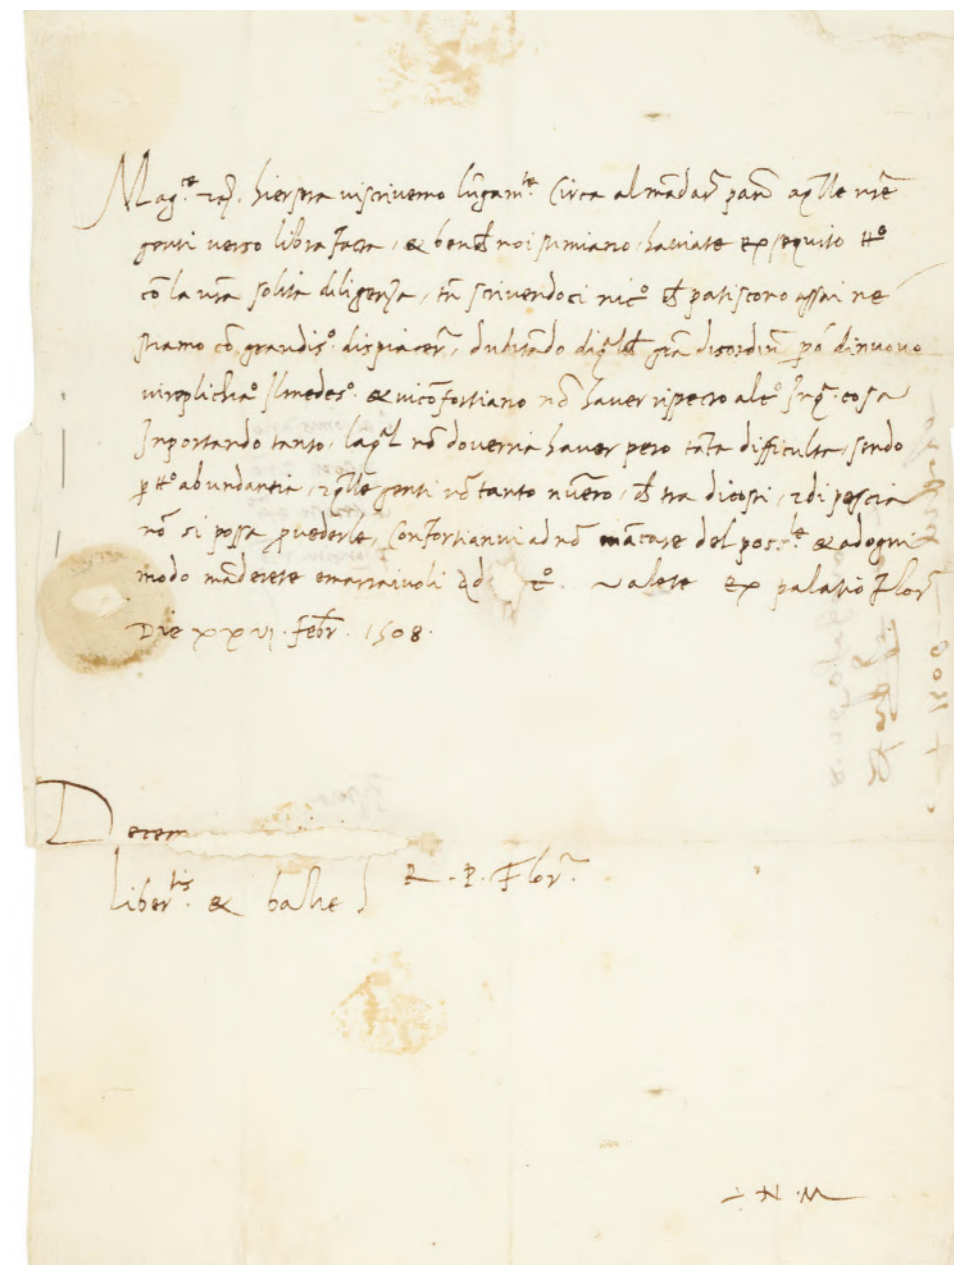 Mag.ce etc. hiersera vi scrivemo lũgam.te circa al mãdar panẽ a q̃lle nr̃e
genti verso librafacta, & benchè noi stimiano haviate exequito tt.o
cõ la vr̃a solita diligenza, tñ scrivendoci nic.o ch̃ patiscono assai ne
stiamo cõ grandis.o dispiacer̃, dubitãdo di q̃lch̃ grã disordiñ p̃o di nuovo
vi replichiã.o il medes.o & vi cõfortiano nõ haver rispecto alc.o in q̃. cosa
Inportando tanto, la q̃l nõ doverria haver pero tãta difficulta, sendo
p tt.o abundantia, et q̃lle genti nõ tanto nũero, ch̃ tra di costi, et di pescia
nõ si possa p̃vederle, Confortianvi ad nõ mãcare del poss.le & ad ogni
modo mãderete e marraivoli Valete ex palatio Flor̃
Die xxvj. febr̃. 1508.
Decem
libert.tis & balie R. P. Flor̃.
N. M